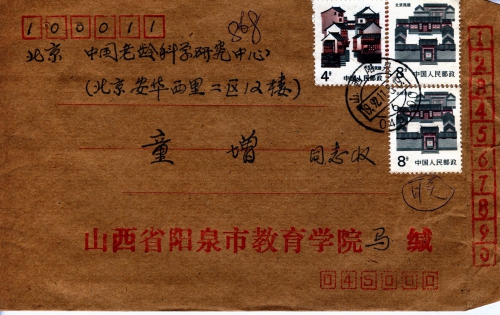 100011
868
北京 中国老龄科学研究中心
(北京安华西里二区12楼)
童增 同志收
4分
8分
中国人民邮政
8分
中国人民邮政
山西省阳泉市教育学院马 缄
045000
1234567890